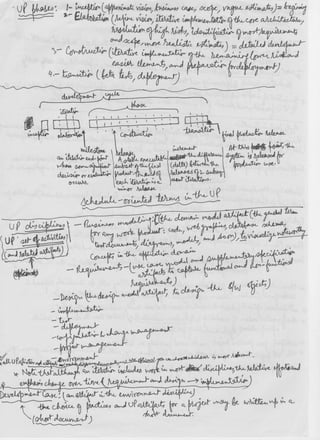 - UP phases: 1- Inception (approximate vision, business case, scope, vague estimates) = beginning
2- Elaboration (refine vision, iterative implementation of the core architecture,
resolution of high risks, identification of most requirements
and scope, more realistic estimates) = detailed development
3- Construction (iterative implementation of the remaining lower risk and
easier elements, and preparation for deployment)
4- transition (beta tests, deployment)
development cycle
iteration
phase
inception elaboration construction transition
final production release
At this point, the system is released for production use.
milestone
an iteration end-point
where some significant
decision or evaluation
occurs.
release
A stable executable
subset of the final
product. The end of
each iteration is a
minor release
increment
the difference
(delta) between the
releases of 2 subsequent
iterations.
schedule-oriented terms in the UP
UP disciplines
UP set of activities
(and related artifacts)
- Business modeling: (the domain model artifact (the general term
for any work product: code, web graphics, database schema
text documents, diagrams, models, and soon), to visualize noteworthy
Concepts in the application domain
- Requirements - (use case model and supplementary specification
artifacts to capture functional and non-functional
requirements)
- Design (the design model artifact, to design the s/w objects)
- implementation
- Test
- deployment
- configuration & change management
- project management
- Environment
* Note that although an iteration includes work in most disciplines, the relative effort and
emphasis change over time (requirement and design → implementation)
Development Case: (an artifact in the environment discipline)
the choice of practices and UP artifacts for a project may be written up in a
(short document) short document.